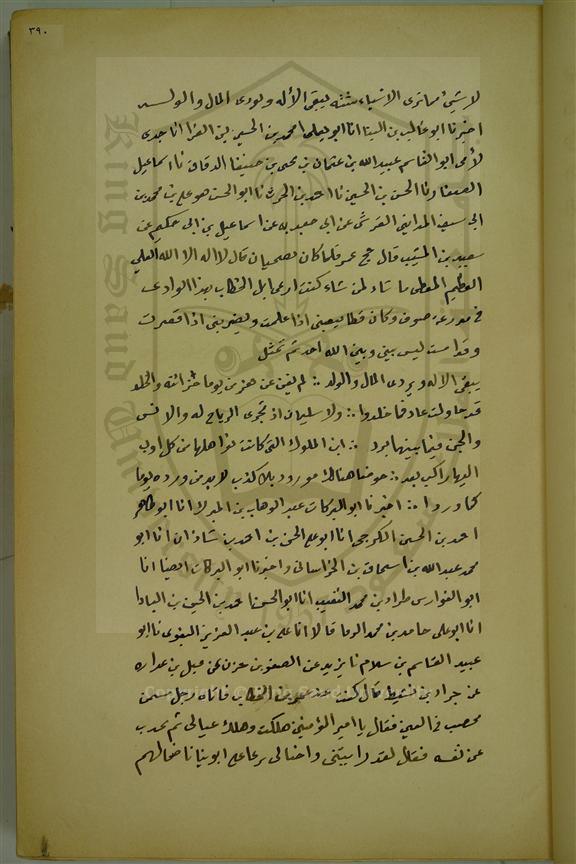 ٣٩٠
لا شيئ مما ترى الاشياء بشته يبقى الأله ويودى المال والولد
اخبرنا ابو غالب بن البنا انا ابو يعلى محمد بن الحسين بن الفرا انا جدى
لأمى ابو القاسم عبيد الله بن عثمان بن يحيى بن حنيقا الدقاق نا اسماعيل
الصفار نا الحسن بن الحسين نا احمد بن الحرث نا ابو الحسن هو على بن محمد بن
ابى سيف المدائنى القرشى عن ابى عن اسماعيل بن ابى حكيم عن
سعيد بن المسيب قال حج عمر فلما كان بضجنان قال لا اله الا الله العلى
العظيم المعطى ما شاء لمن شاء كنت ارعى ابل الخطاب بهذا الوادى
فى مدرعة صوف وكان فظا يتعبنى اذا عملت ويضربنى اذا قصرت
وقد امسيت ليس بينى وبين الله احد ثم تمثل
يبقى الاله ويردى المال والولد ∴ لم يغن عن هرمز يوما خزائنه والخلد
قد حاولت عاد فما خلدوا ∴ ولا سليمان اذ تجرى الرياح له والانس
والجن فيما بينها برد ∴ اين الملوك التى كانت نواهلها من كل اوب
اليها راكب يفد ∴ حوضا هنالك مورود بلا كذب لا بد من ورده يوما
كما وردوا ∴ اخبرنا ابو البركات عبد الوهاب بن المبارك انا ابو طاهر
احمد بن الحسن الكرجى انا ابو على الحسن بن احمد بن شاذان انا ابو
محمد عبد الله بن اسحاق بن الخراسانى واخبرنا ابو البركات ايضا انا
ابو الفوارس طراد بن محمد النقيب انا ابو الحسن احمد بن الحسين بن البادا
انا ابو على حامد بن محمد الرفا قالا انا على بن عبد العزيز البغوى نا ابو
عبيد القاسم بن سلام نا يزيد عن الصعق بن حزن عن فيل بن عراده
عن جراد بن نشيط قال كنت عند عمر بن الخطاب فاتاه رجل مسمن
مخصب فى العين فقال يا امير المؤمنين هلكت وهلك عيالى ثم يحدب
عن نفسه فقال لقد رايتنى واختا لى نرعا على ابوينا ناضحا لهم